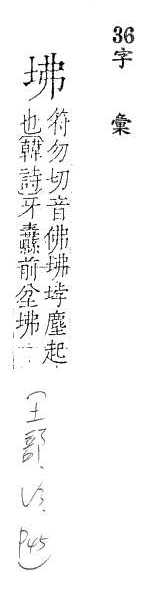 36
字彙
坲
符勿切音佛坲塵起
也[韓詩]牙纛前坌坲
(土部. P45)